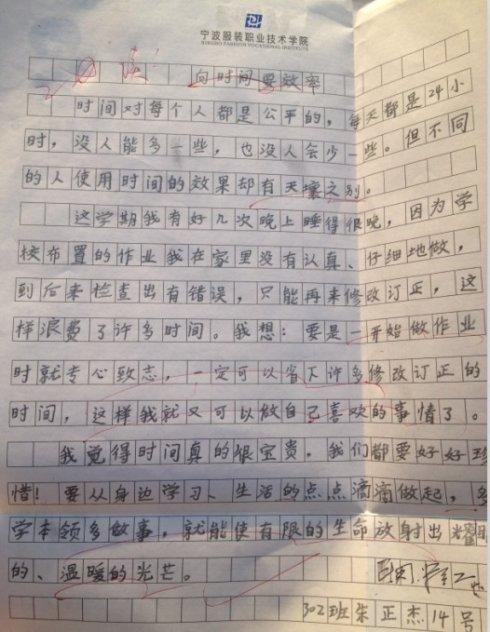 宁波服装职业技术学院
NINGBO FASHION VOCATIONAL INSTITUTE
读
向时间要效率
时间对每个人都是公平的，每天都是24小
时，没人能多一些，也没人会少一些。但不同
的人使用时间的效果却有天壤之别。
这学期我有好几次晚上睡得很晚，因为学
校布置的作业我在家里没有认真、仔细地做，
到后来检查出有错误，只能再来修改订正，这
样浪费了许多时间。我想：要是一开始做作业
时就专心致志，一定可以省下许多修改订正的
时间，这样我就又可以做自己喜欢的事情了。
我觉得时间真的很宝贵，我们都要好好珍
惜！要从身边学习、生活的点点滴滴做起，多
学本领多做事，就能使有限的生命放射出
的、温暖的光芒。
302班朱正杰14号